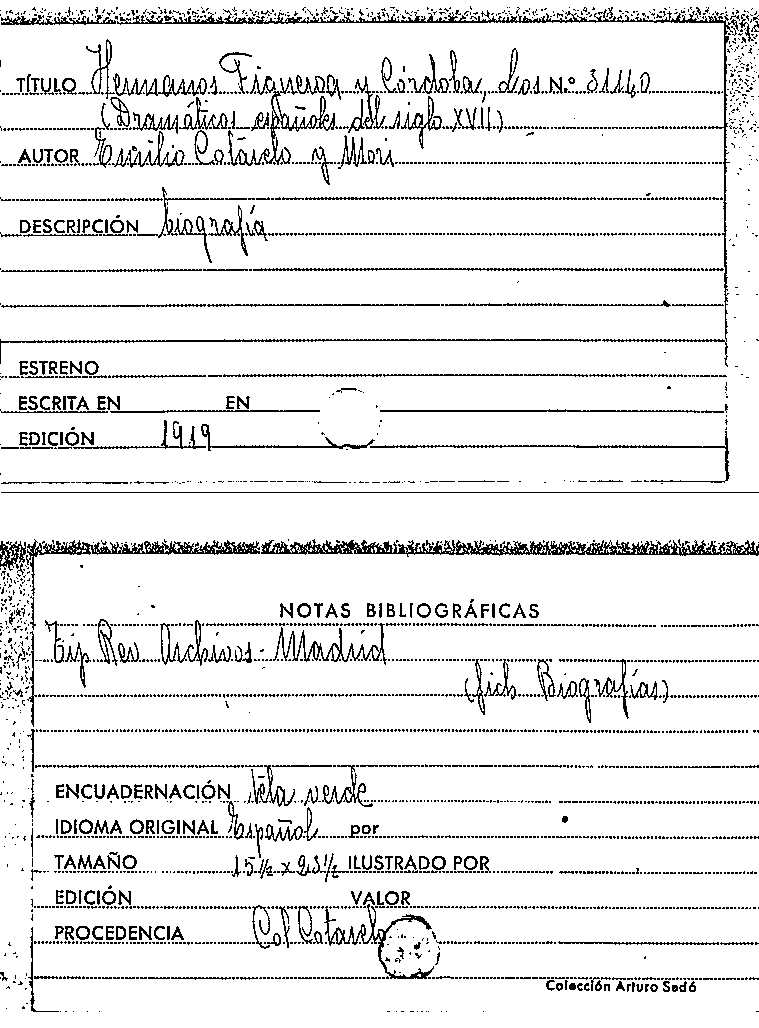 TÍTULO Hermanos Figueroa y Córdoba, Los N.º 31140
(Dramáticos españoles del siglo XVII)
AUTOR Emilio Cotarelo y Mori
DESCRIPCIÓN biografía
ESTRENO
ESCRITA EN EN
EDICIÓN 1919
NOTAS BIBLIOGRÁFICAS
Tip Rev Archivos - Madrid
(fich Biografías)
ENCUADERNACIÓN tela verde
IDIOMA ORIGINAL Español por
TAMAÑO 15½ x 23½ ILUSTRADO POR
EDICIÓN VALOR
PROCEDENCIA Col Cotarelo
Colección Arturo Sedó